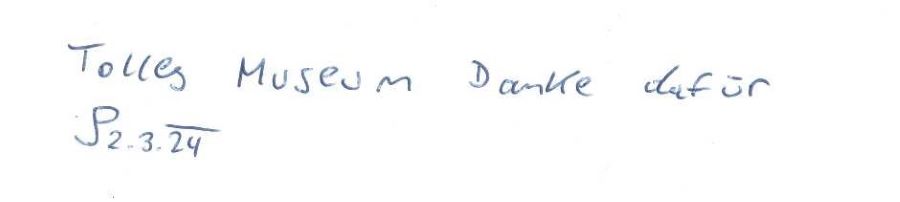 Tolles Museum Danke dafür
2.3.24